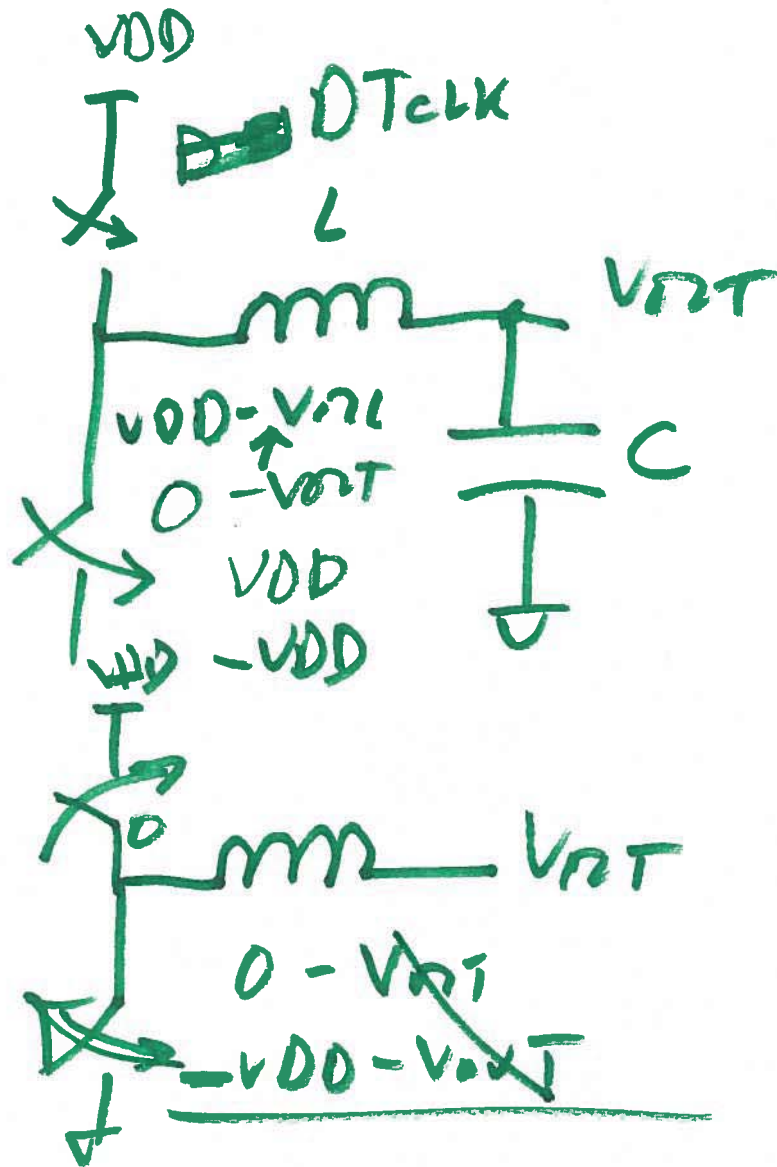 VDD
DTCLK
L
VOUT
VDD-VOUT
0 -VOUT
C
VDD
-VDD
0
VOUT
0 - VOUT
-VDD-VOUT